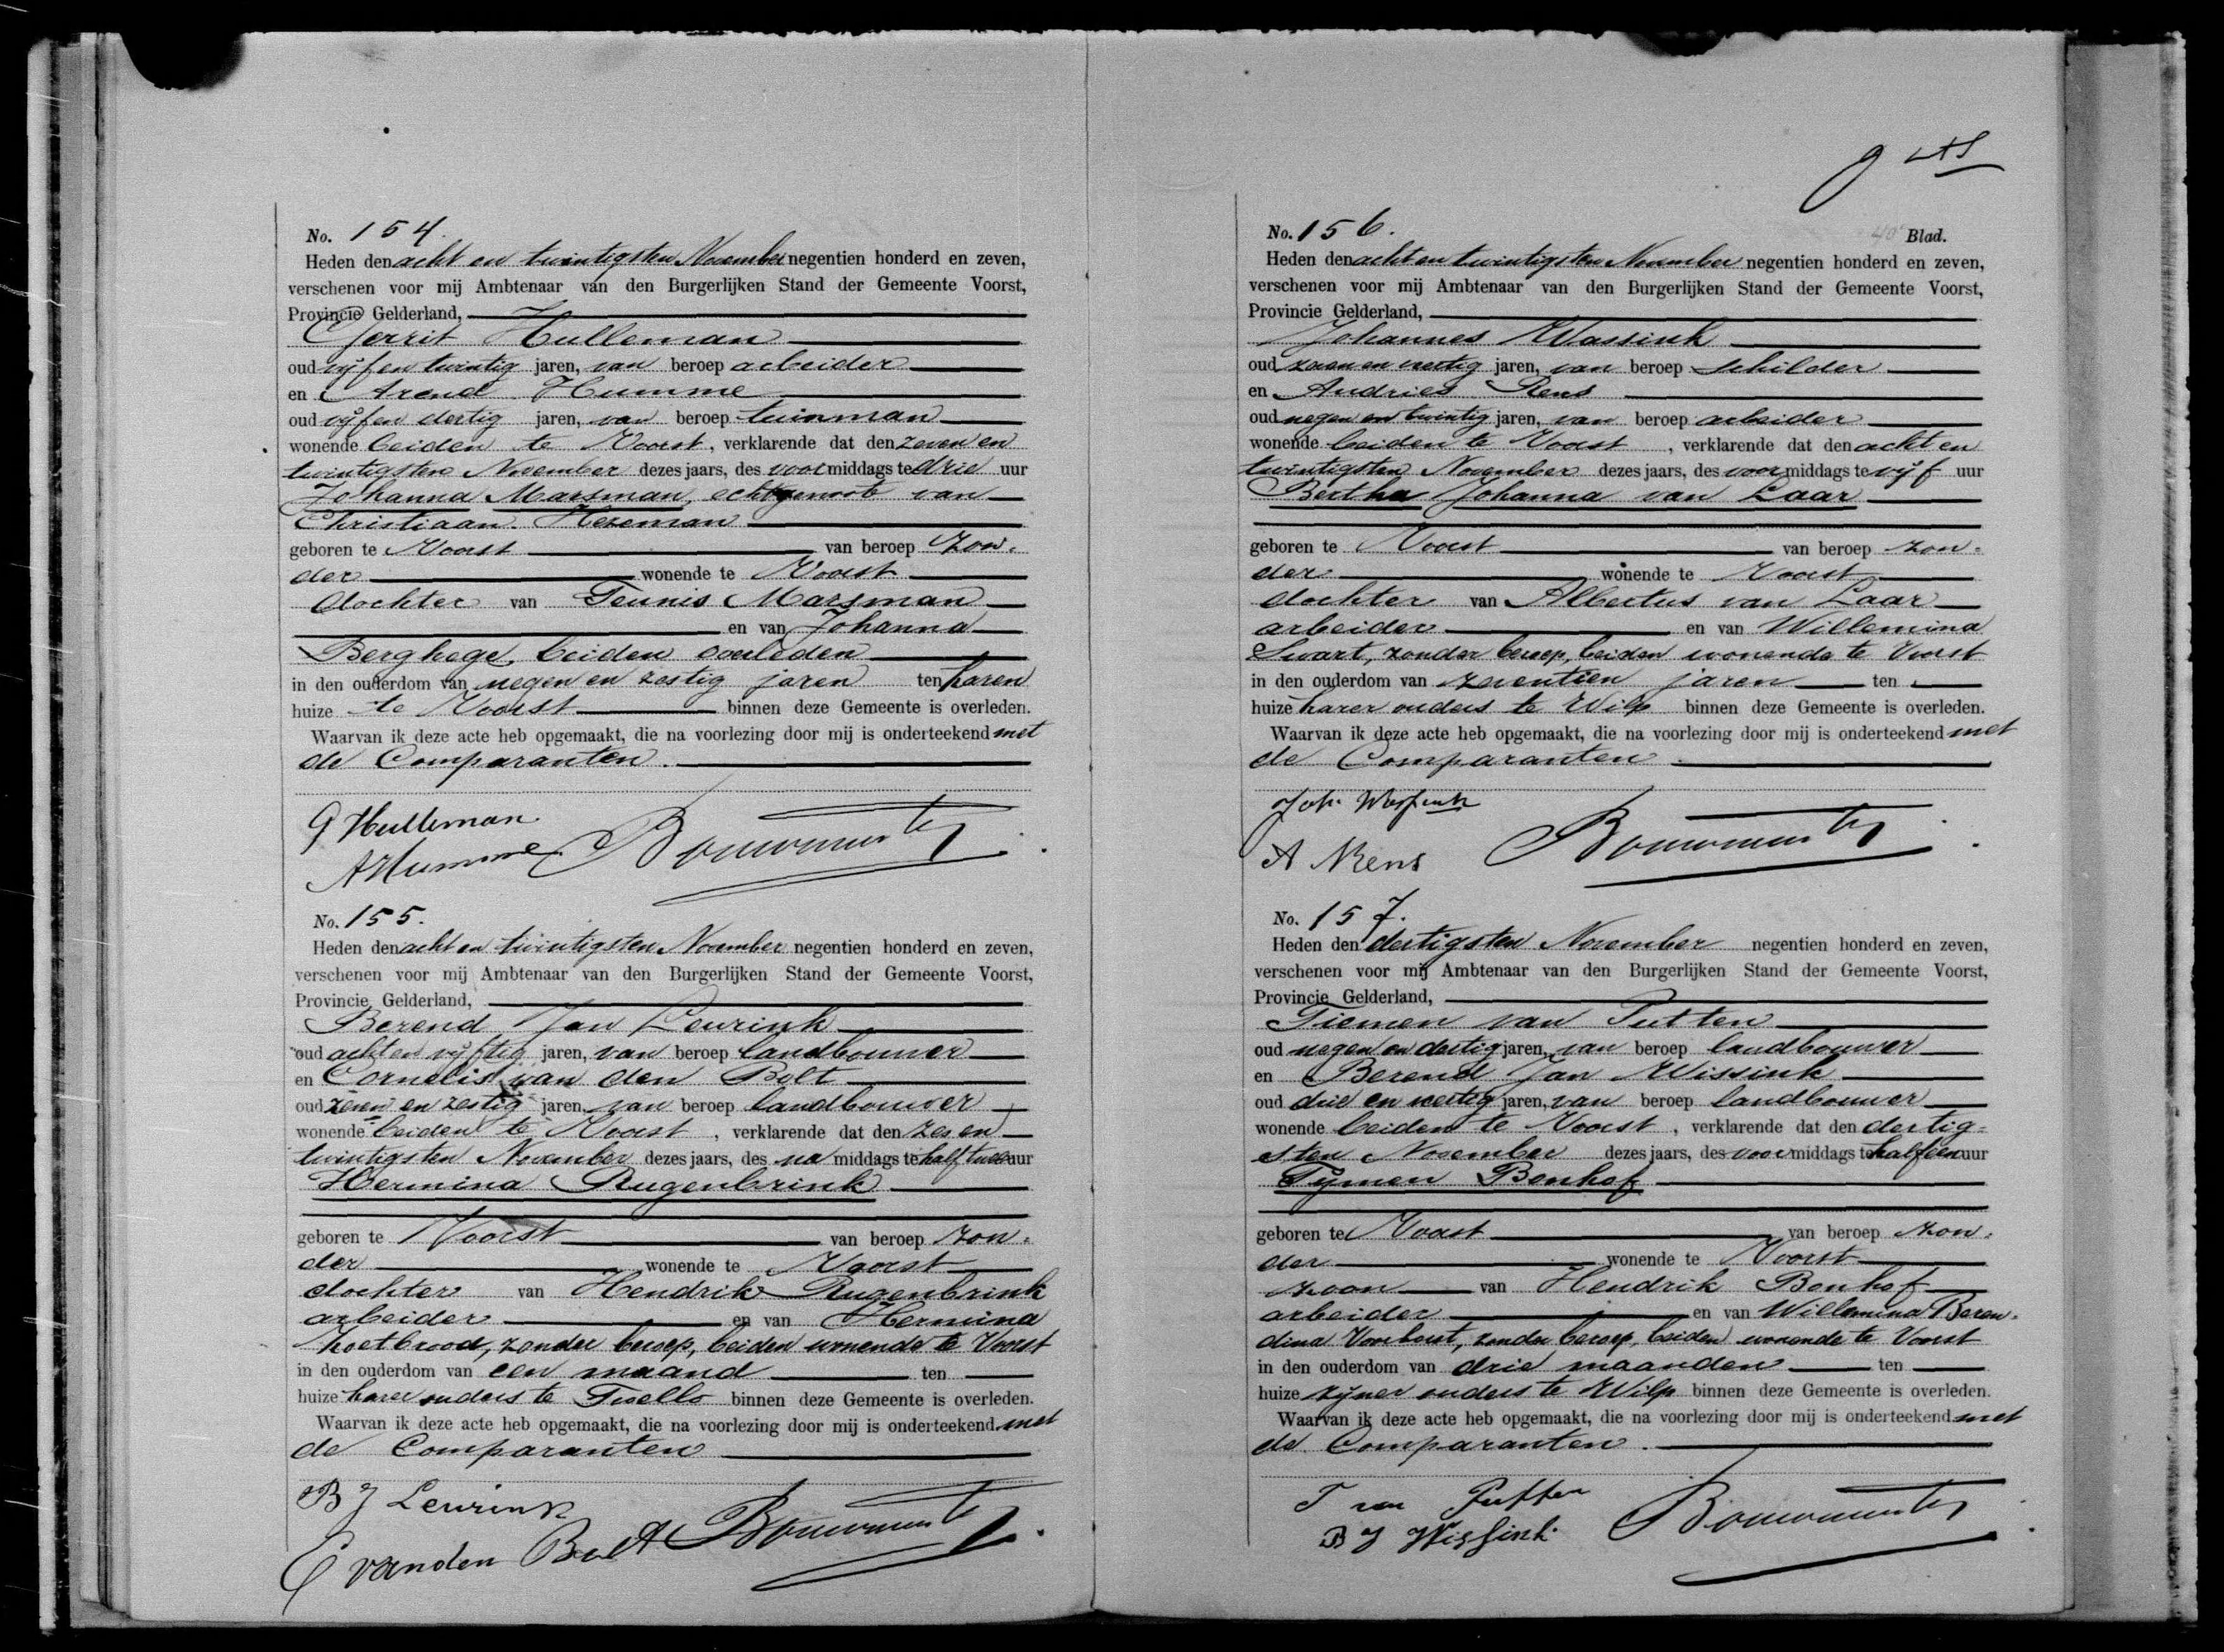 No. 154.
Heden den acht en twintigsten November negentien honderd en zeven,
verschenen voor mij Ambtenaar van den Burgerlijken Stand der Gemeente Voorst,
Provincie Gelderland,
Gerrit Hulleman
oud vijf en twintig jaren, van beroep arbeider
en Arend Humme
oud vijf en dertig jaren, van beroep tuinman
wonende beiden te Voorst, verklarende dat den zeven en
twintigsten November dezes jaars, des voormiddags te drie uur
Johanna Marsman, echtgenoot van
Christiaan Hezeman
geboren te Voorst van beroep zon-
der wonende te Voorst
dochter van Teunis Marsman
en van Johanna
Berghege, beiden overleden
in den ouderdom van negen en zestig jaren ten haren
huize te Voorst binnen deze Gemeente is overleden.
Waarvan ik deze acte heb opgemaakt, die na voorlezing door mij is onderteekend met
de Comparanten.
G Hulleman
A Humme
No. 155.
Heden den acht en twintigsten November negentien honderd en zeven,
verschenen voor mij Ambtenaar van den Burgerlijken Stand der Gemeente Voorst,
Provincie Gelderland,
Berend Jan Leurink
oud acht en vijftig jaren, van beroep landbouwer
en Cornelis van den Bolt
oud zeven en zestig jaren, van beroep landbouwer
wonende beiden te Voorst, verklarende dat den zes en
twintigsten November dezes jaars, des na middags te half twee uur
Hermina Rugenbrink
geboren te Voorst van beroep zon-
der wonende te Voorst
dochter van Hendrik Rugenbrink
arbeider en van Hermina
Zoetbrood, zonder beroep, beiden wonende te Voorst
in den ouderdom van een maand ten
huize harer ouders te Twello binnen deze Gemeente is overleden.
Waarvan ik deze acte heb opgemaakt, die na voorlezing door mij is onderteekend met
de Comparanten
B J Leurink
C van den Bolt
No. 156.
Blad.
Heden den acht en twintigsten November negentien honderd en zeven,
verschenen voor mij Ambtenaar van den Burgerlijken Stand der Gemeente Voorst,
Provincie Gelderland,
Johannes Wassink
oud zeven en veertig jaren, van beroep schilder
en Andries Rens
oud negen en twintig jaren, van beroep arbeider
wonende beiden te Voorst, verklarende dat den acht en
twintigsten November dezes jaars, des voormiddags te vijf uur
Bertha Johanna van Laar
geboren te Voorst van beroep zon-
der wonende te Voorst
dochter van Albertus van Laar
arbeider en van Willemina
Swart, zonder beroep, beiden wonende te Voorst
in den ouderdom van zeventien jaren ten
huize harer ouders te Wilp binnen deze Gemeente is overleden.
Waarvan ik deze acte heb opgemaakt, die na voorlezing door mij is onderteekend met
de Comparanten.
Joh. Wassink
A Rens
No. 157.
Heden den dertigsten November negentien honderd en zeven,
verschenen voor mij Ambtenaar van den Burgerlijken Stand der Gemeente Voorst,
Provincie Gelderland,
Tiemen van Putten
oud negen en dertig jaren, van beroep landbouwer
en Berend Jan Wissink
oud drie en veertig jaren, van beroep landbouwer
wonende beiden te Voorst, verklarende dat den dertig-
sten November dezes jaars, des voormiddags te half een uur
Tijmen Bonhof
geboren te Voorst van beroep zon-
der wonende te Voorst
zoon van Hendrik Bonhof
arbeider en van Willemina Beren-
dina Voorhorst, zonder beroep, beiden wonende te Voorst
in den ouderdom van drie maanden ten
huize zijner ouders te Wilp binnen deze Gemeente is overleden.
Waarvan ik deze acte heb opgemaakt, die na voorlezing door mij is onderteekend met
de Comparanten.
T van Putten
B J Wissink